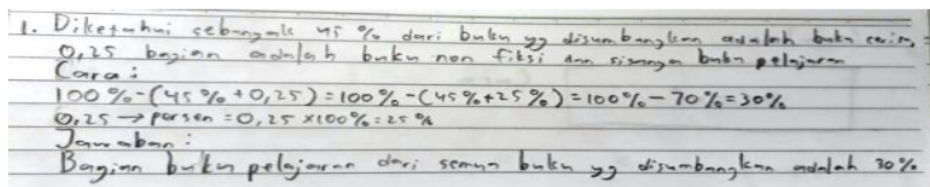 1. Diketahui sebanyak 45 % dari buku yg disumbangkan adalah buku cerita,
0,25 bagian adalah buku non fiksi dan sisanya buku pelajaran
Cara :
100 % - (45 % + 0,25) = 100 % - (45 % + 25 %) = 100 % - 70 % = 30 %
0,25 → persen = 0,25 × 100 % = 25 %
Jawaban :
Bagian buku pelajaran dari semua buku yg disumbangkan adalah 30 %